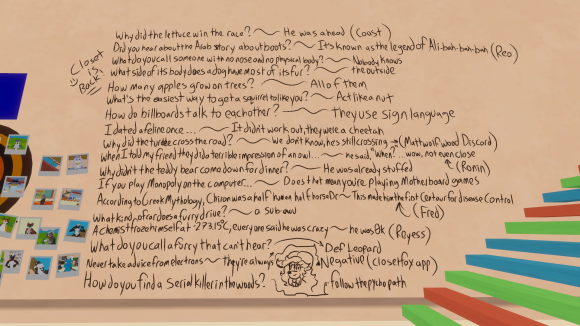 Why did the lettuce win the race? ~ He was ahead (Coast)
Did you hear about the Arab story about boots? ~ It's known as the legend of Ali-bah-bah-bah (Reo)
What do you call someone with no nose and no physical body? ~ Nobody knows
What side of its body does a dog have most of its fur? ~ the outside
Closet is Back!
How many apples grow on trees? ~ All of them
What's the easiest way to get a squirrel to like you? ~ Act like a nut
How do billboards talk to eachother? ~ they use sign language
I dated a feline once... ~ It didn't work out, they were a cheetah
Why did the turtle cross the road? ~ we don't know, he's still crossing → (Mattwolfwood Discord)
When I told my friend they did a terrible impression of an owl... ~ he said, "When?"... wow, not even close
Why didn't the teddy bear come down for dinner? ~ He was already stuffed (Ronin)
If you play Monopoly on the computer... ~ Does that mean you're playing Motherboard games
According to Greek Mythology, Chiron was a half human half horse Dr ~ This made him the first Centaur for disease Control
What kind of car does a furry drive? ~ a Subawd (Fred)
A chemist froze himself at -273.15°C, everyone said he was crazy ~ he was 0k (Reyess)
What do you call a furry that can't hear? Def Leopard
Never take advice from electrons ~ they're always Negative (closetfox app)
How do you find a Serial killer in the woods? follow the psycho path